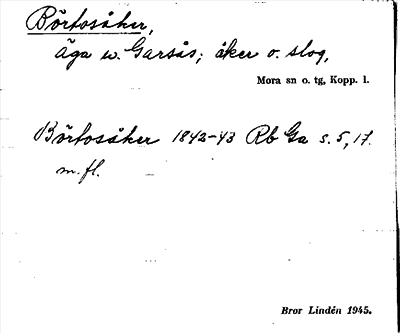 Börtosåker,
äga w. Garsås; åker o. slog,
Mora sn o. tg, Kopp. l.
Börtosåker 1842-43 Rb Ga s. 5, 17.
m. fl.
Bror Lindén 1945.